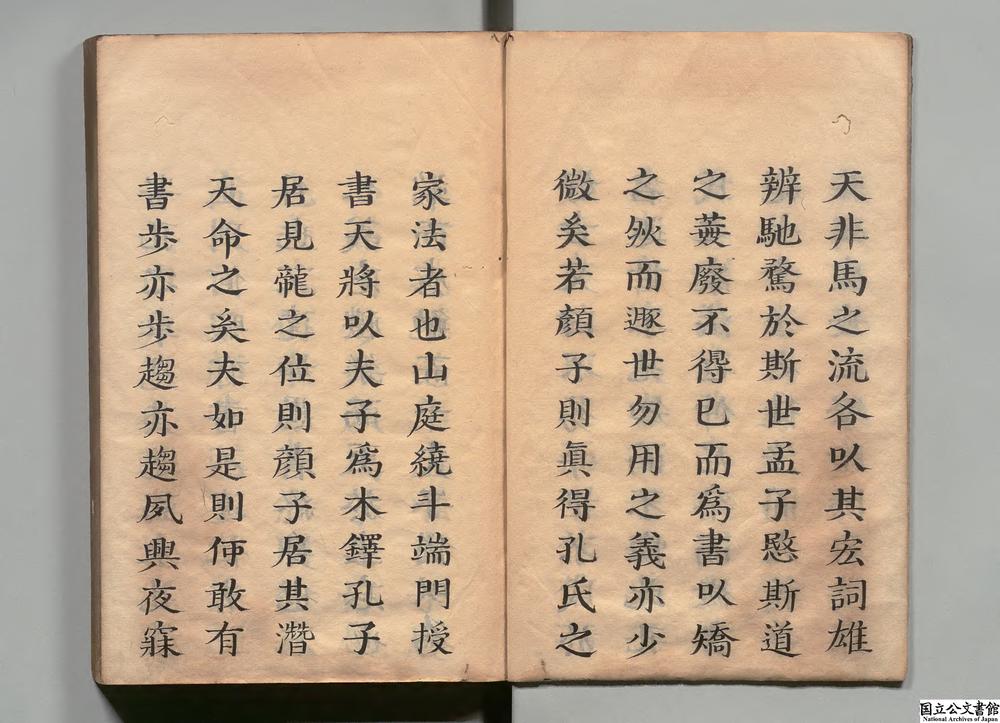 天非馬之流各以其宏詞雄
辨馳騖於斯世孟子愍斯道
之蕪廢不得已而為書以矯
之然而遯世勿用之義亦少
微矣若顏子則真得孔氏之
家法者也山庭繞斗端門授
書天將以夫子為木鐸孔子
居見龍之位則顏子居其潛
天命之矣夫如是則何敢有
書步亦步趨亦趨夙興夜寐
国立公文書館
National Archives of Japan